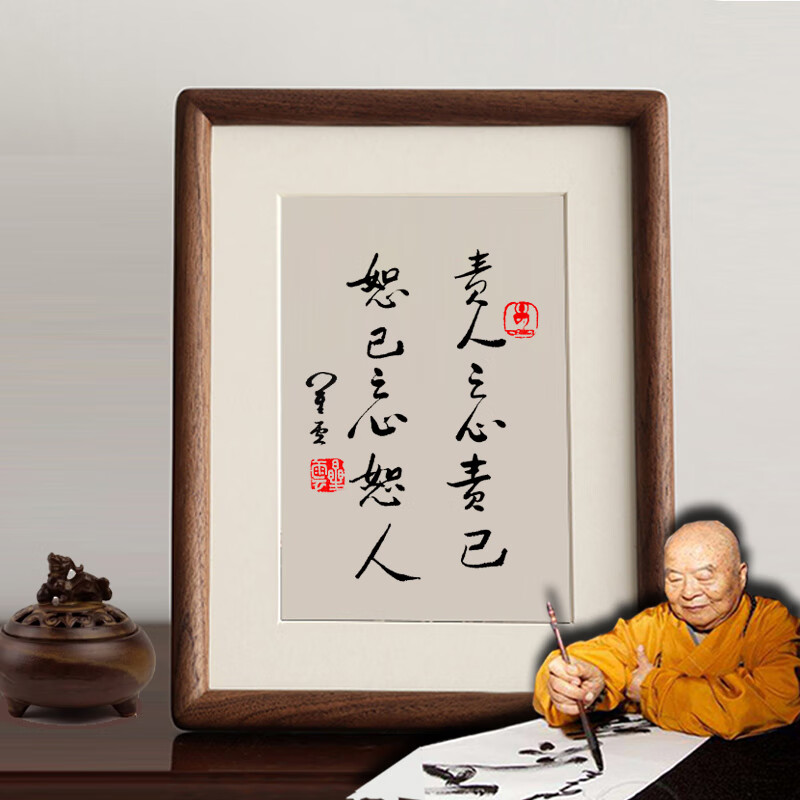 责人之心责己
恕己之心恕人
星云
星雲